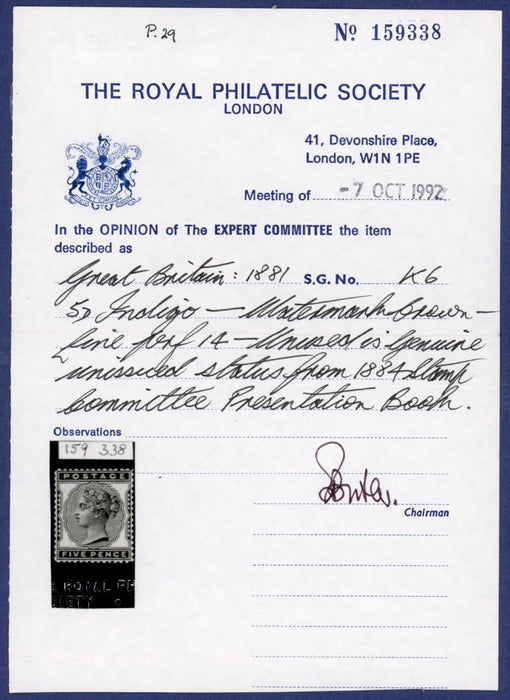 P.29
No 159338
THE ROYAL PHILATELIC SOCIETY
LONDON
41, Devonshire Place,
London, W1N 1PE
Meeting of -7 OCT 1992
In the OPINION of The EXPERT COMMITTEE the item
described as
Great Britain: 1881 S.G. No. K6
5D Indigo — Watermark Crown —
line perf 14 — Unused is genuine
unissued status from 1884 Stamp
Committee Presentation Book.
Observations
159 338
POSTAGE
FIVE PENCE
ROYAL PH
Chairman